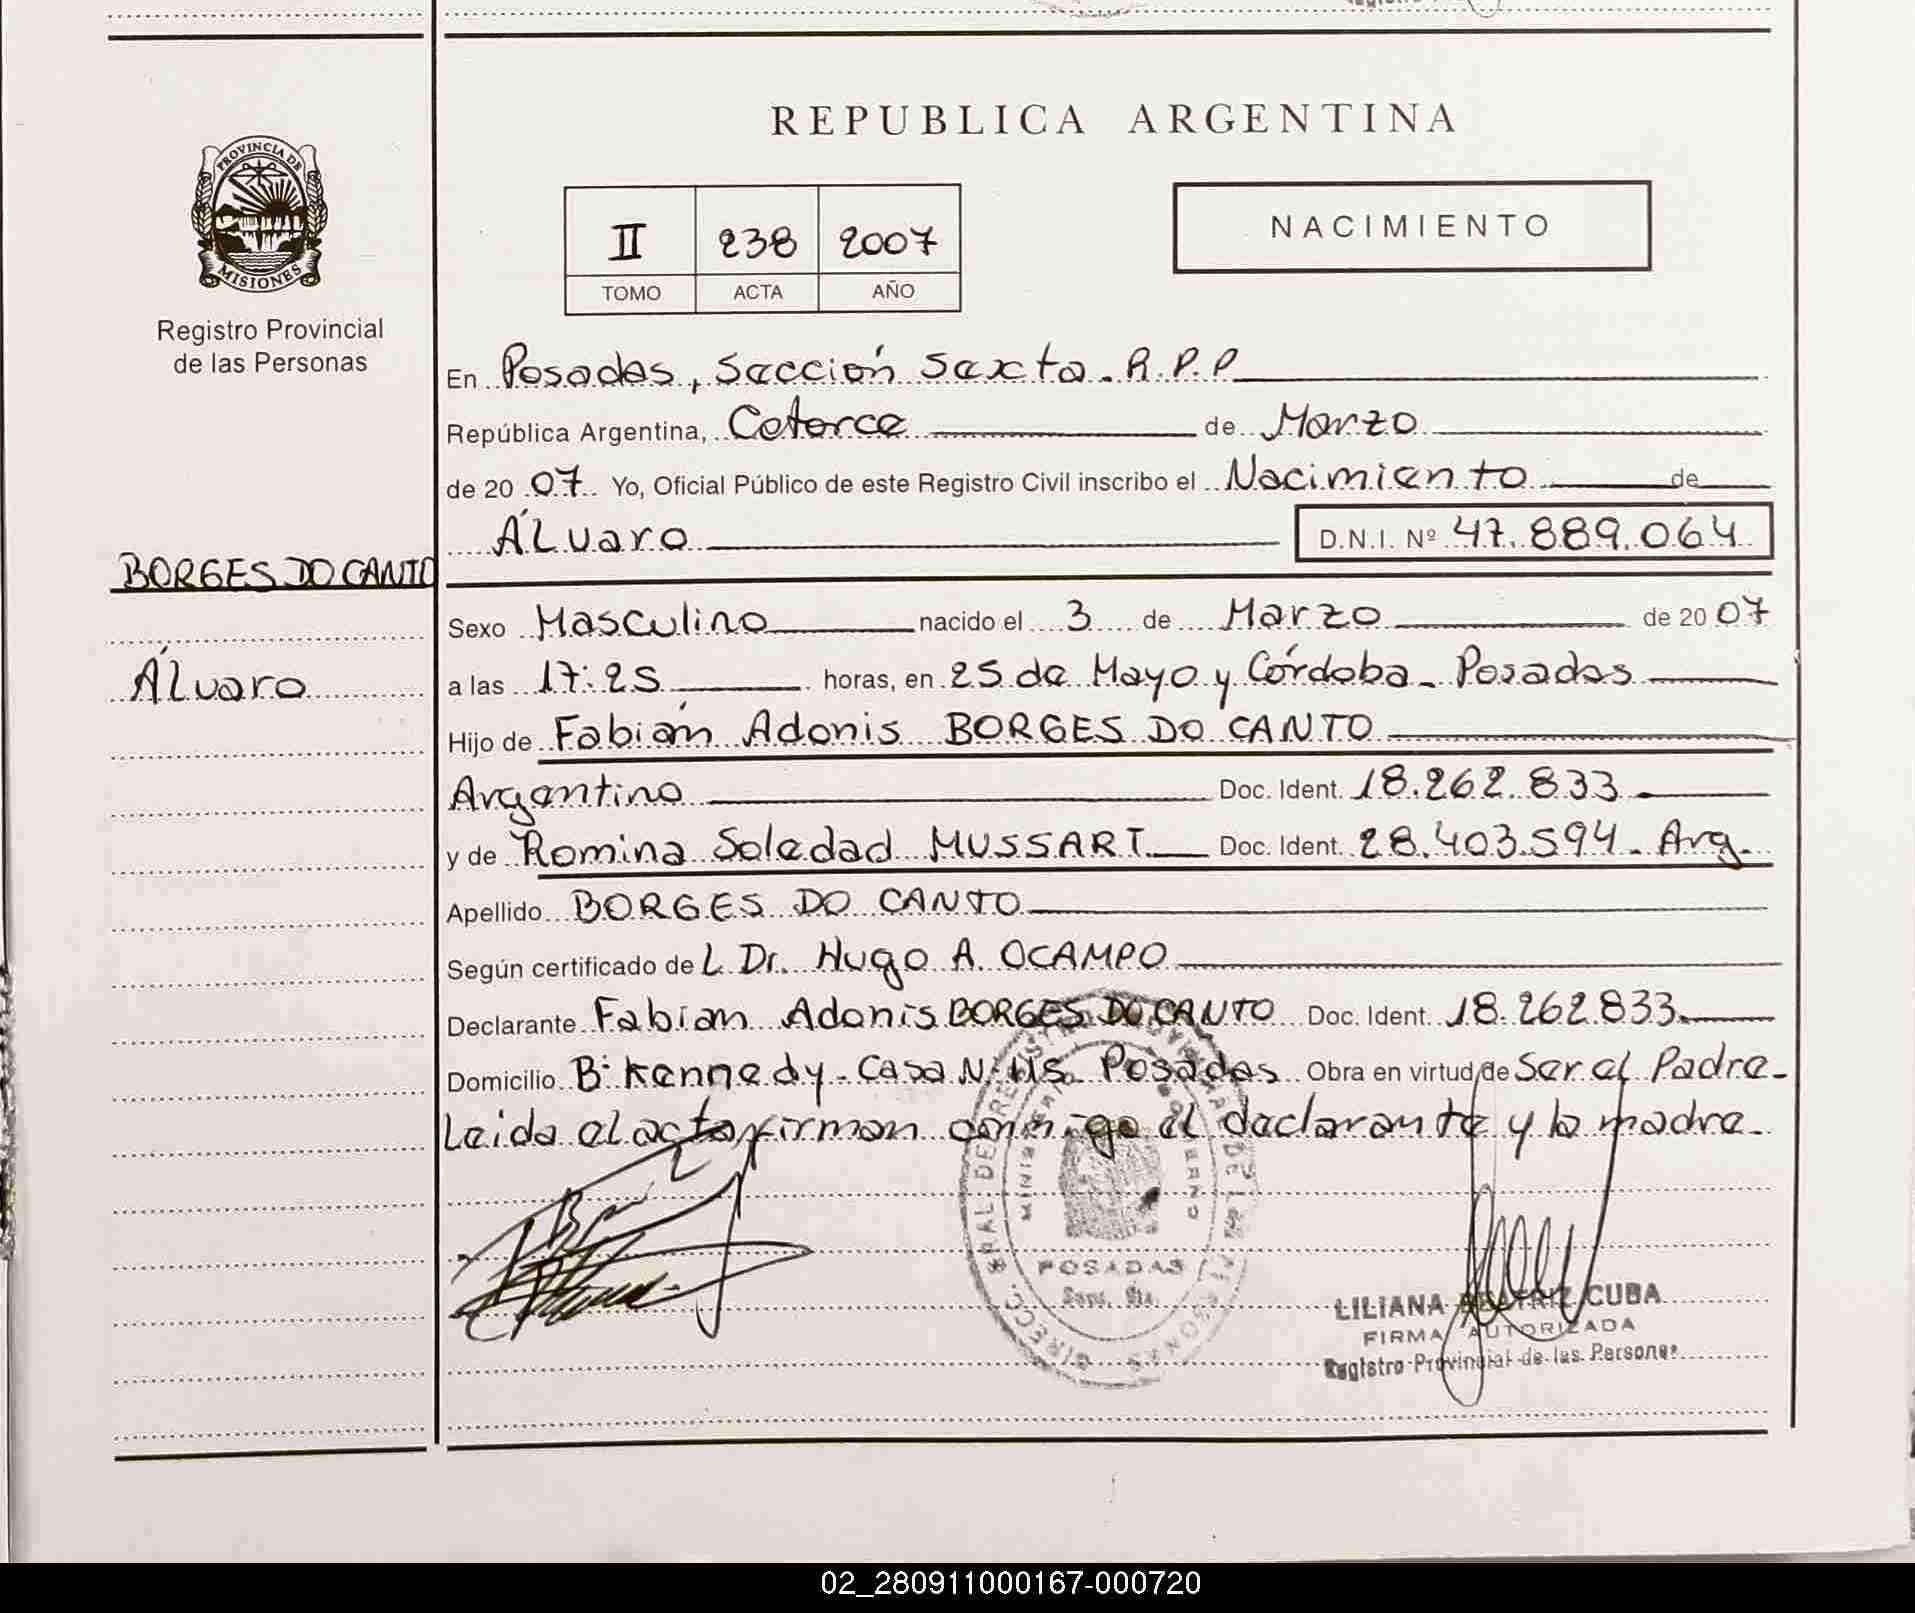 REPUBLICA ARGENTINA
PROVINCIA DE
MISIONES
Registro Provincial
de las Personas
II 238 2007
TOMO ACTA AÑO
NACIMIENTO
En Posadas, Sección Sexta. R.P.P
República Argentina, Catorce de Marzo
de 20 07 Yo, Oficial Público de este Registro Civil inscribo el Nacimiento de
Álvaro D.N.I. Nº 47.889.064
BORGES DO CANTO
Álvaro
Sexo Masculino nacido el 3 de Marzo de 20 07
a las 17:25 horas, en 25 de Mayo y Córdoba - Posadas
Hijo de Fabián Adonis BORGES DO CANTO
Argentino Doc. Ident. 18.262.833
y de Romina Soledad MUSSART Doc. Ident. 28.403.594 - Arg.
Apellido BORGES DO CANTO
Según certificado de L Dr. Hugo A. OCAMPO
Declarante Fabian Adonis BORGES DO CANTO Doc. Ident. 18.262.833
Domicilio Bº Kennedy - Casa Nº 115. Posadas Obra en virtud de Ser el Padre -
Leida el acta firman conmigo el declarante y la madre.
POSADAS
LILIANA BEATRIZ CUBA
FIRMA AUTORIZADA
Registro Provincial de las Personas
02_280911000167-000720